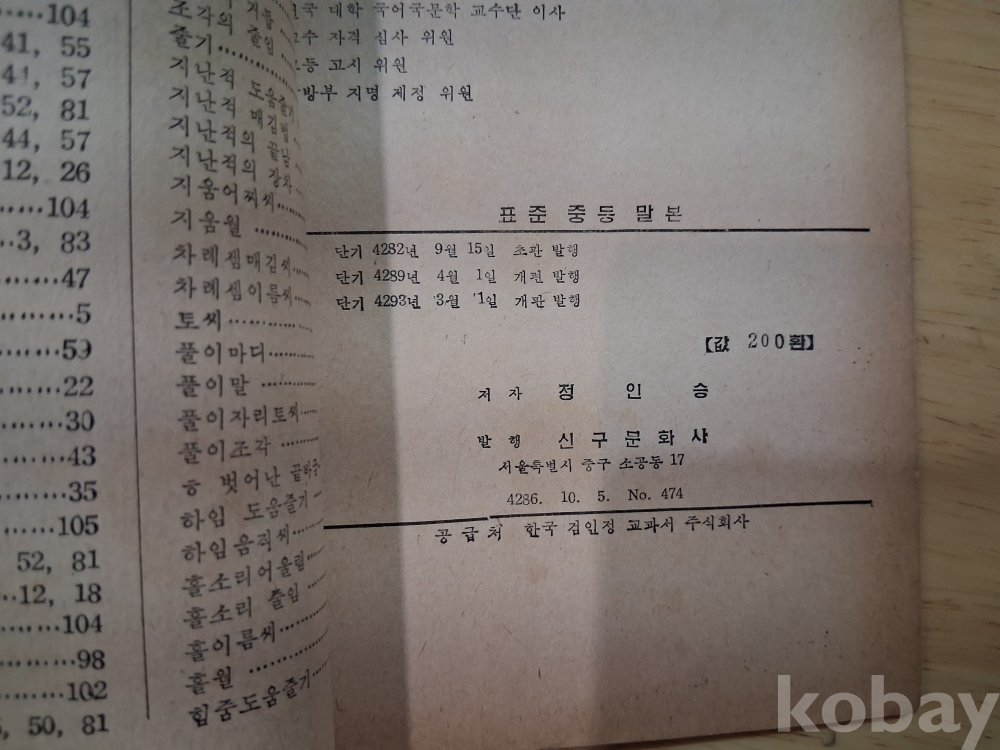 104
41, 55
44, 57
52, 81
44, 57
12, 26
104
3, 83
47
5
59
22
30
43
35
105
52, 81
12, 18
104
98
102
50, 81
조각의 줄임
줄기
지난적 도움줄기
지난적 매김법
지난적의 끝남
지난적의
지움어찌씨
지움월
차례셈매김씨
차례셈이름씨
토씨
풀이마디
풀이말
풀이자리토씨
풀이조각
ㅎ 벗어난 끝바꿈
하임 도움줄기
하임움직씨
홀소리어울림
홀소리 줄임
홀이름씨
홀월
힘줌도움줄기
대학 국어국문학 교수단 이사
자격 심사 위원
고시 위원
지명 제정 위원
표준 중등 말본
단기 4282년 9월 15일 초판 발행
단기 4289년 4월 1일 개편 발행
단기 4293년 3월 1일 개판 발행
【값 200환】
저자 정인승
발행 신구문화사
서울특별시 중구 소공동 17
4286. 10. 5. No. 474
공급처 한국 검인정 교과서 주식회사
kobay